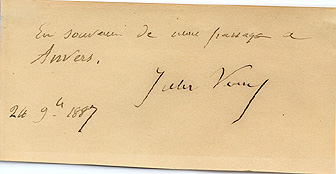 En souvenir de mon passage à
Anvers.
Jules Verne
24 9bre 1887